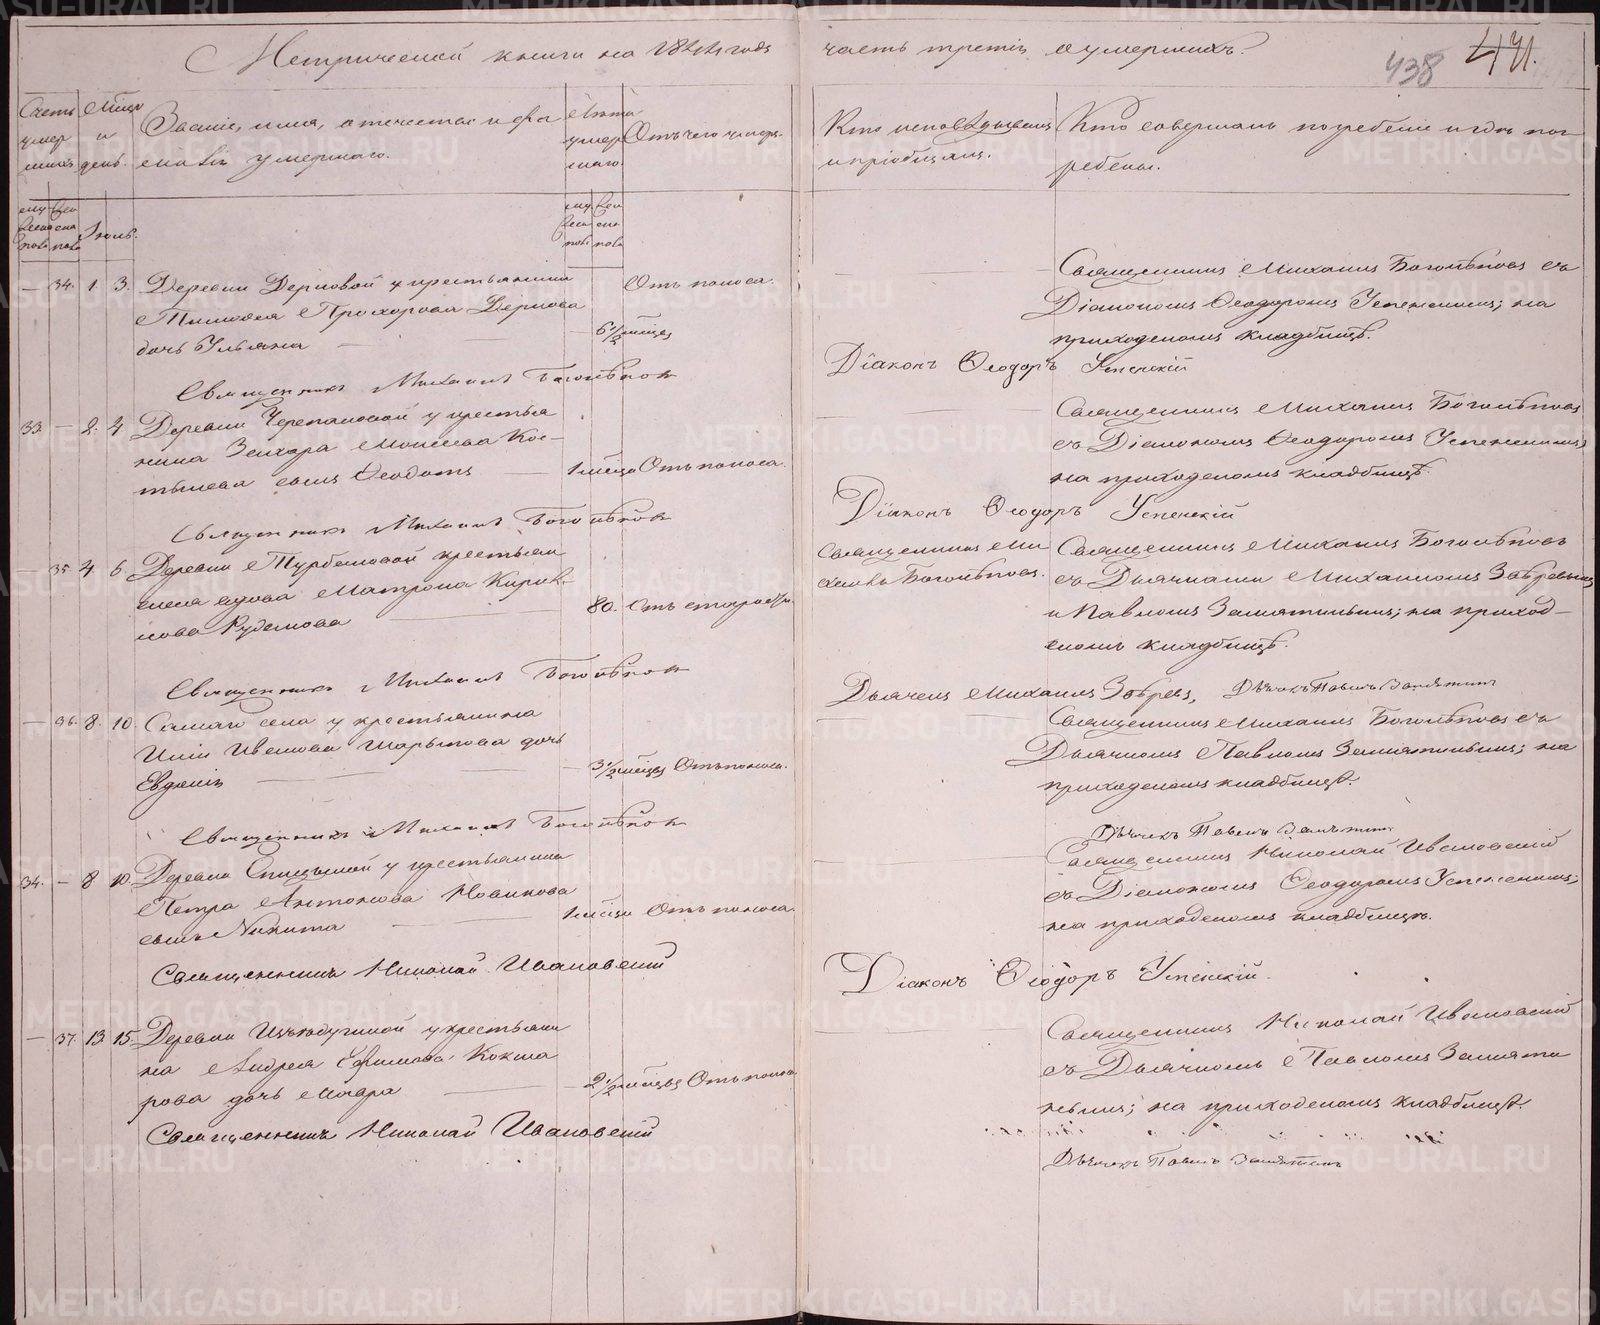 Метрической книги на 1844 года
часть третія о умершихъ.
438
441.
Счетъ умершихъ
Мѣсяцъ и день.
Званіе, имя, отечество и фамилія умершаго.
Лѣта умершаго.
Отъ чего умеръ.
Кто исповѣдывалъ и пріобщалъ.
Кто совершалъ погребеніе и гдѣ погребены.
мужеска пола
женска пола
Іюль.
мужеска пола
женска пола
— 34. 1 3. Деревни Дерновой у крестьянина
Тимофея Прохорова Дернова
дочь Ульяна — — 6½ мѣсяц.
Отъ поноса.
Священникъ Михаилъ Боголѣповъ съ
Діакономъ Ѳеодоромъ Успенскимъ; на
приходскомъ кладбищѣ.
Священникъ Михаилъ Боголѣповъ
Діаконъ Ѳеодоръ Успенскій
33. — 2. 4 Деревни Черепановой у крестья
нина Захара Моисеева Кос-
тылева сынъ Ѳеодотъ — 1 мѣсяца Отъ поноса.
Священникъ Михаилъ Боголѣповъ
съ Діакономъ Ѳеодоромъ Успенскимъ;
на приходскомъ кладбищѣ.
Священникъ Михаилъ Боголѣповъ
Діаконъ Ѳеодоръ Успенскій
— 35 4 6. Деревни крестьян
вдова Матрона Кирил-
лова — 80. Отъ старости.
Священникъ Ми
хаилъ Боголѣповъ.
Священникъ Михаилъ Боголѣповъ
съ Дьячками Михаиломъ
и Павломъ Замятинымъ; на приход-
скомъ кладбищѣ.
Священникъ Михаилъ Боголѣповъ
Дьячекъ Михаилъ Дьячекъ Павелъ Замятинъ
— 36. 8. 10. Самаго села у крестьянина
Иліи Иванова Шарыпова дочь
Евдокія — — — 3½ мѣсяц. Отъ поноса.
Священникъ Михаилъ Боголѣповъ съ
Дьячкомъ Павломъ Замятинымъ; на
приходскомъ кладбищѣ.
Священникъ Михаилъ Боголѣповъ
Дьячекъ Павелъ Замятинъ
34. — 8 10. Деревни Спицыной у крестьянина
Петра Антонова Новикова
сынъ Никита — 1 мѣсяц Отъ поноса.
Священникъ Николай Ивановскій
съ Діакономъ Ѳеодоромъ Успенскимъ;
на приходскомъ кладбищѣ.
Священникъ Николай Ивановскій
Діаконъ Ѳеодоръ Успенскій.
— 37. 13 15. Деревни у крестьяни
на Андрея Ефимова Кокша
рова дочь — 2½ мѣсяц Отъ поноса
Священникъ Николай Ивановскій
съ Дьячкомъ Павломъ Замяти
нымъ; на приходскомъ кладбищѣ.
Священникъ Николай Ивановскій
Дьячекъ Павелъ Замятинъ
METRIKI.GASO-URAL.RU